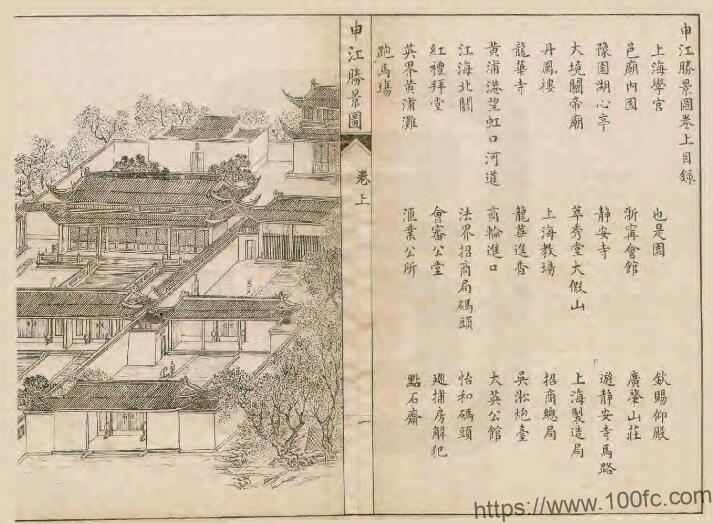 申江勝景圖卷上目錄
上海學宮 也是園 欽賜仰殿
邑廟內園 浙甯會館 廣肇山莊
豫園湖心亭 靜安寺 遊靜安寺馬路
大境關帝廟 萃秀堂大假山 上海製造局
丹鳳樓 上海教場 招商總局
龍華寺 龍華進香 吳淞炮臺
黃浦港望虹口河道 商輪進口 大英公館
江海北關 法界招商局碼頭 怡和碼頭
紅禮拜堂 會審公堂 巡捕房解犯
英界黃浦灘 滙業公所 點石齋
跑馬場
申江勝景圖 卷上 一
https://www.100fc.com